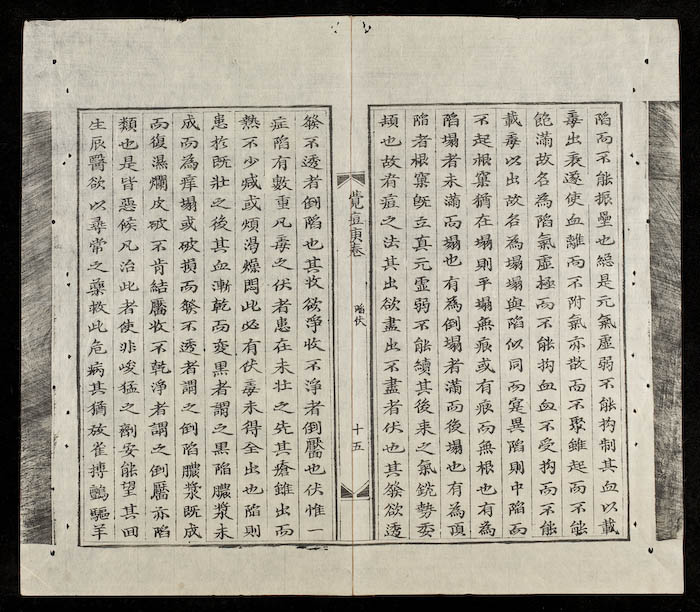 陷而不能振壘也總是元氣虛弱不能拘制其血以載
毒出表遂使血離而不附氣亦散而不聚雖起而不能
飽滿故名為陷氣虛極而不能拘血血不受拘而不能
載毒以出故名為塌塌與陷似同而寔異陷則中陷而
不起根窠猶在塌則乎塌無痕或有痕而無根也有為
陷塌者未滿而塌也有為倒塌者滿而後塌也有為頂
陷者根窠既立真元虛弱不能續其後来之氣銃勢委
頹也故看痘之法其出欲盡出不盡者伏也其發欲透
覺痘庚卷 陷伏 十五
發不透者倒陷也其收欲淨收不淨者倒靨也伏惟一
症陷有數重凡毒之伏者患在未壮之先其瘡雖出而
熱不少減或煩渴燥悶此必有伏毒未得全出也陷則
患於既壮之後其血漸乾而変黑者謂之黑陷膿漿未
成而為痒塌或破損而發不透者謂之倒陷膿漿既成
而復濕爛皮破不肯結靨收不乾淨者謂之倒靨亦陷
類也是皆惡候凡治此者使非峻猛之劑安能望其回
生辰醫欲以尋常之藥救此危病其猶放雀搏鸇驅羊